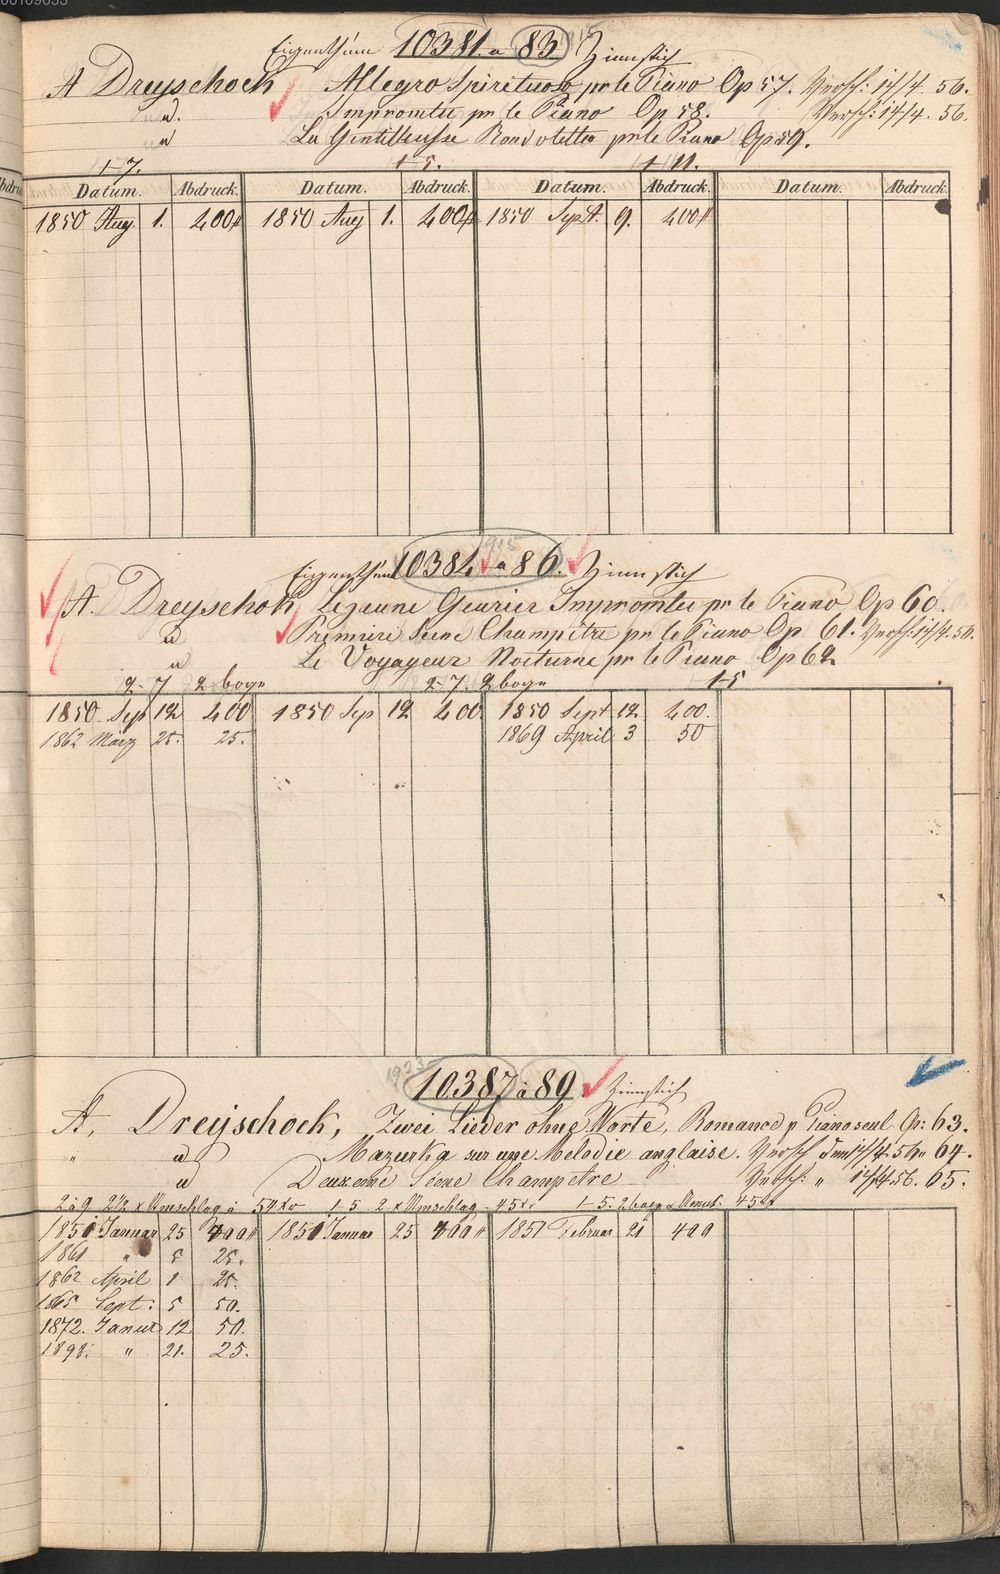 Eigenthum 10381. a 83. Zinnstich
A Dreyschock Allegro Spirituoso pr le Piano Op 57. Versch: 14/4. 56.
d. Impromtu pr le Piano Op 58. Versch: 14/4. 56.
d La Gentilleusse Rondoletto pr le Piano Op 59.
1-7. 1-5. 1-11.
Datum. Abdruck. Datum. Abdruck. Datum. Abdruck. Datum. Abdruck.
1850 Aug. 1. 400 1850 Aug 1. 400 1850 Sept. 9. 400
1915
Eigenthum 10384 a 86. Zinnstich
A. Dreyschok Lejeune Geurier Impromtu pr le Piano Op 60.
d Premiere Scene Champêtre pr le Piano Op 61. Versch: 14/4. 56.
d Le Voyageur Nocturne pr le Piano Op 62
2-7 2 bogn 2-7. 2 bogn 1-5
1850 Sep 12 400 1850 Sep 12. 400 1850 Sept 12. 400.
1862 März 25. 25. 1869 April 3 50
1923
10387 à 89. Zinnstich
A. Dreyschock, Zwei Lieder ohne Worte, Romance p Piano seul Op: 63.
" d Mazurka sur une Melodie anglaise. Versch 14/4. 56 64.
d Deuxeme Scene Champetre Versch: " 14/4 56. 65.
2 à 9 2½ x Umschlag à 54 xr 1-5 2 x Umschlag 45 xr 1-5. 2 bogn 45 xr
1851 Januar 25 1851 Januar 25 1851 Februar 21 400
1861 " 5 25.
1862 April 1 25.
1865 Sept: 5 50.
1872. Januar 12 50.
1898. " 21. 25.